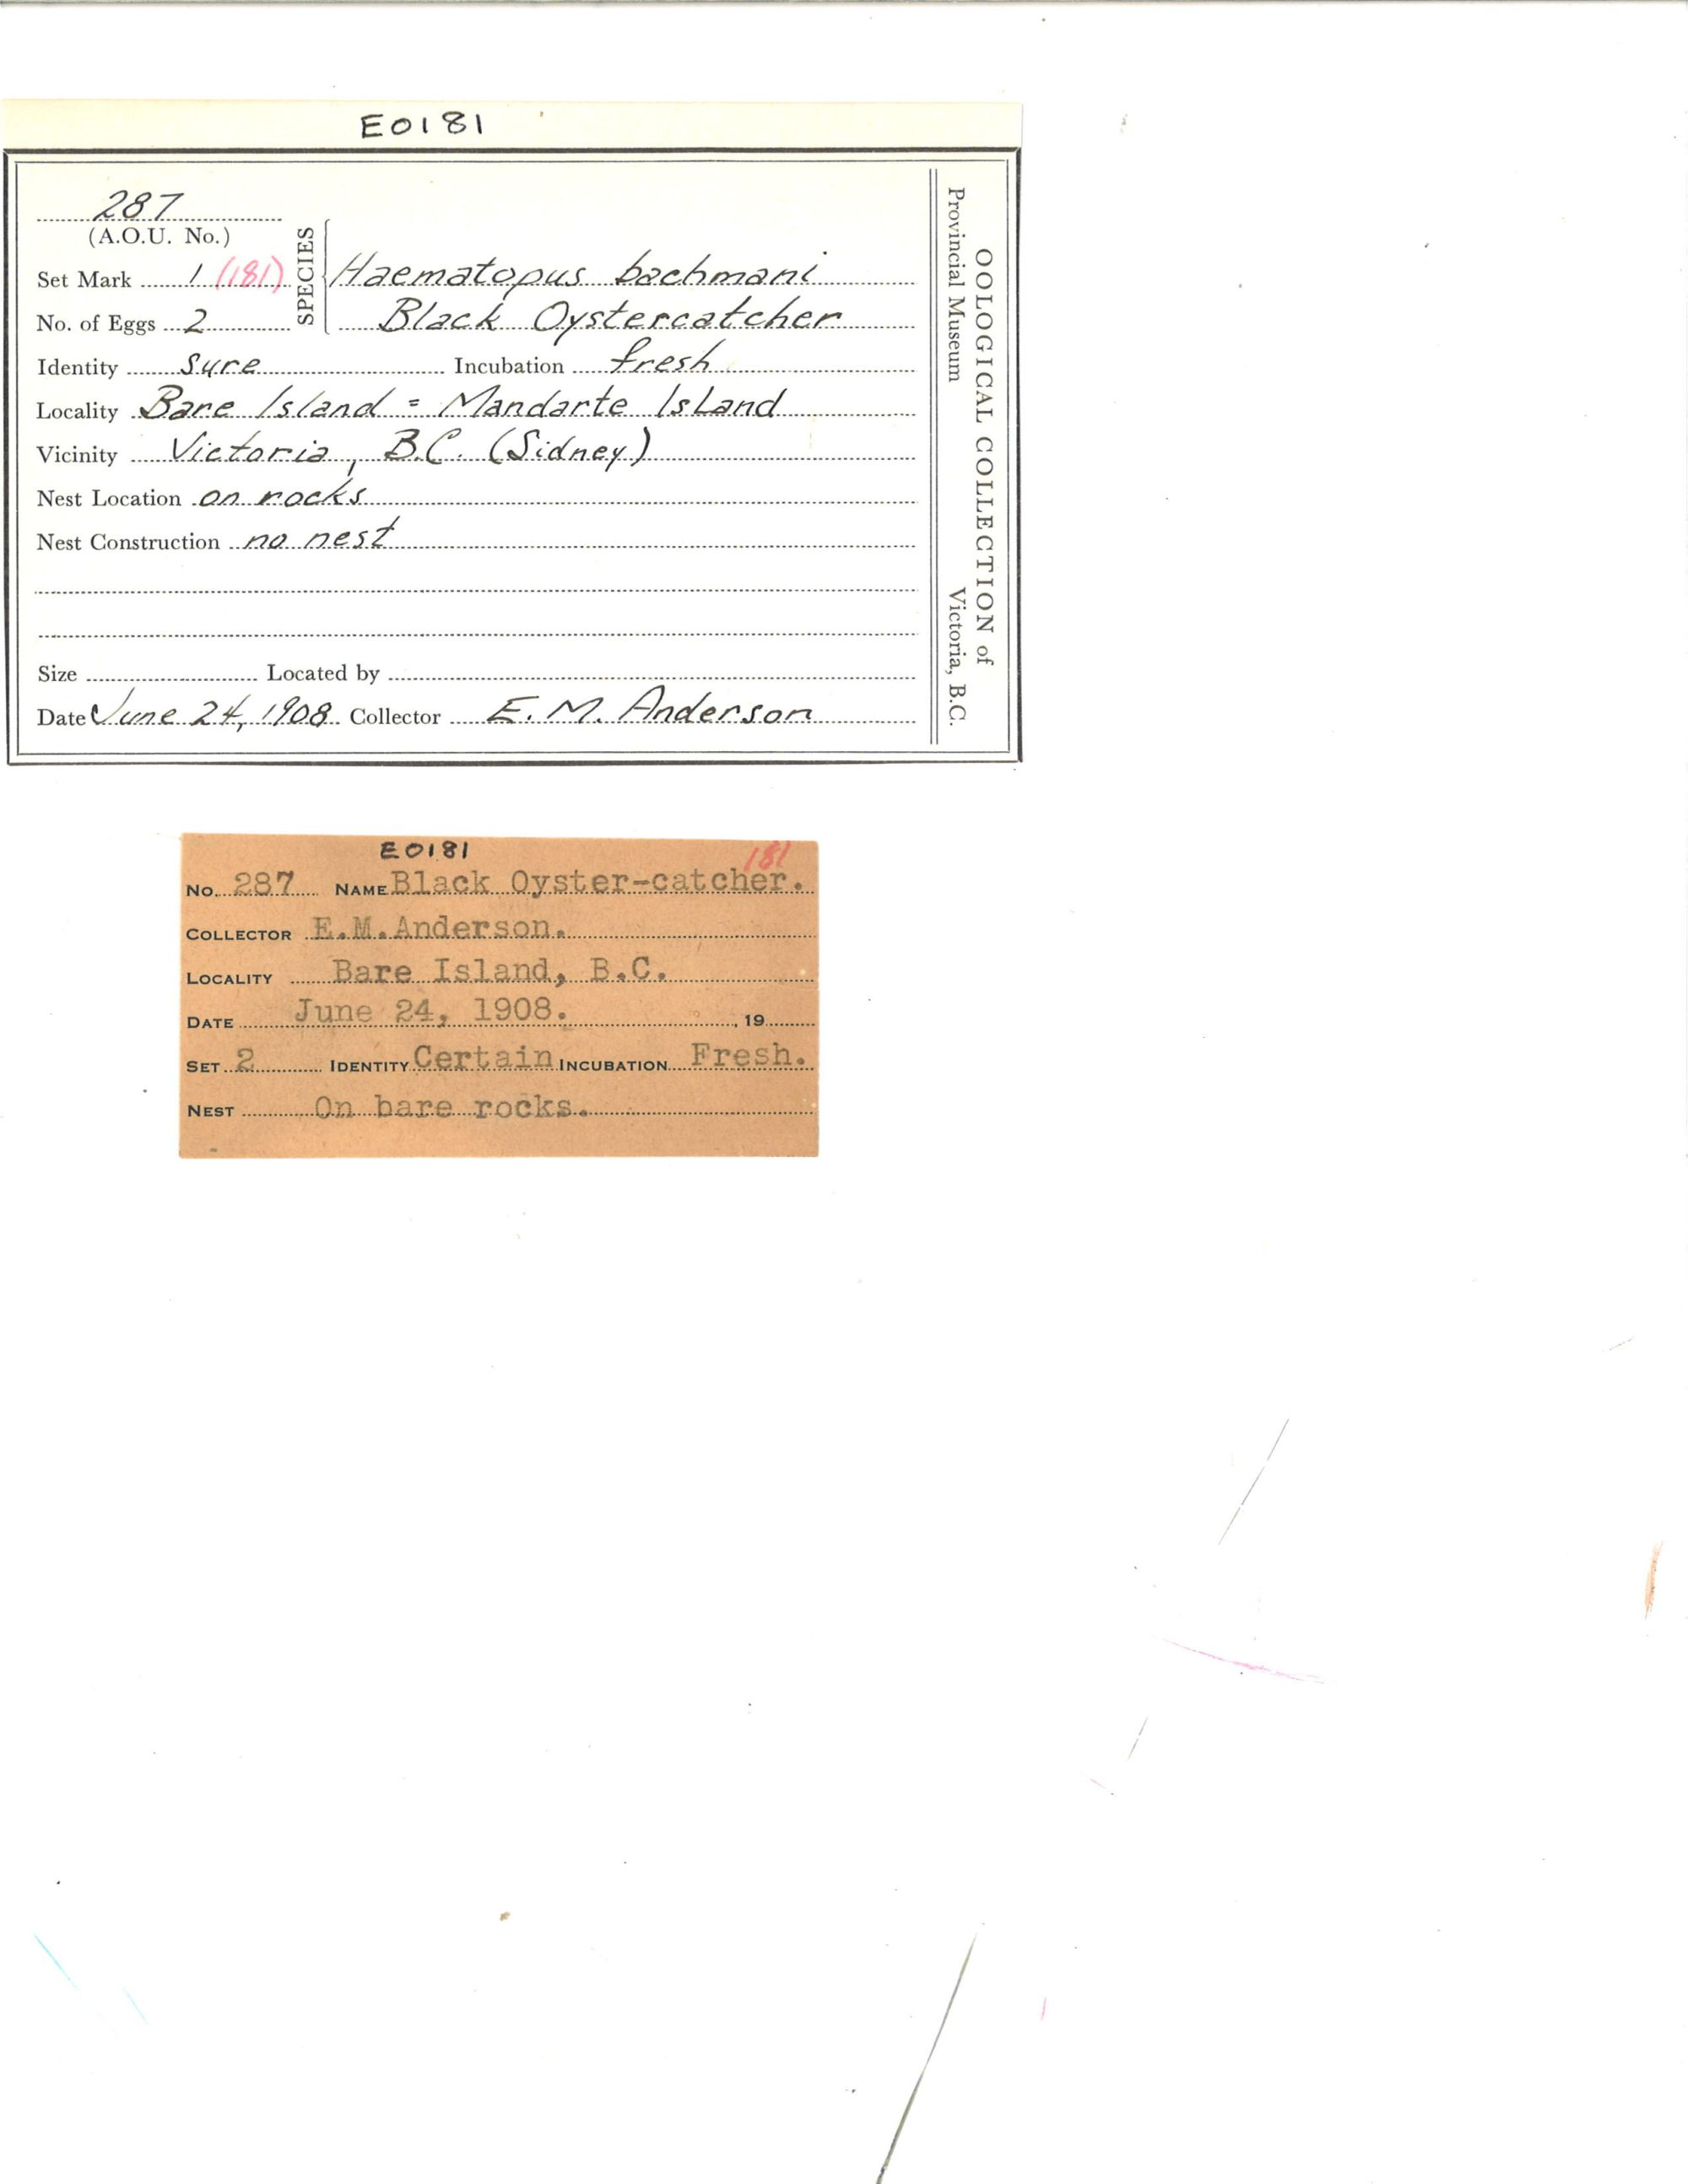 E0181
287
(A.O.U. No.)
Set Mark 1 (181)
No. of Eggs 2
SPECIES
Haematopus bachmani
Black Oystercatcher
Identity sure Incubation fresh
Locality Bare Island = Mandarte Island
Vicinity Victoria, B.C. (Sidney)
Nest Location on rocks
Nest Construction no nest
Size Located by
Date June 24, 1908 Collector E. M. Anderson
OOLOGICAL COLLECTION of
Provincial Museum Victoria, B.C.
E0181
181
No. 287 NAME Black Oyster-catcher.
COLLECTOR E.M.Anderson.
LOCALITY Bare Island, B.C.
DATE June 24, 1908. , 19
SET 2 IDENTITY Certain INCUBATION Fresh.
NEST On bare rocks.